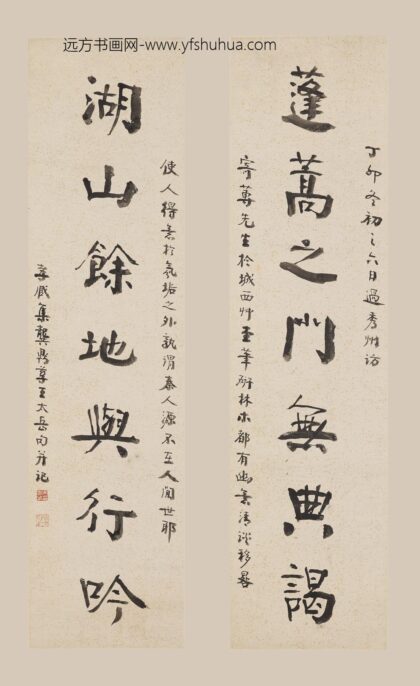 远方书画网-www.yfshuhua.com
丁卯冬初之六日過秀州訪
蓬蒿之門無典謁
先生於城西艸堂筆研林木都有幽意清談移晷
使人得意於氛垢之外孰謂秦人源不在人間世耶
湖山餘地與行吟
孝臧集龔鼎孳王大岳句并記